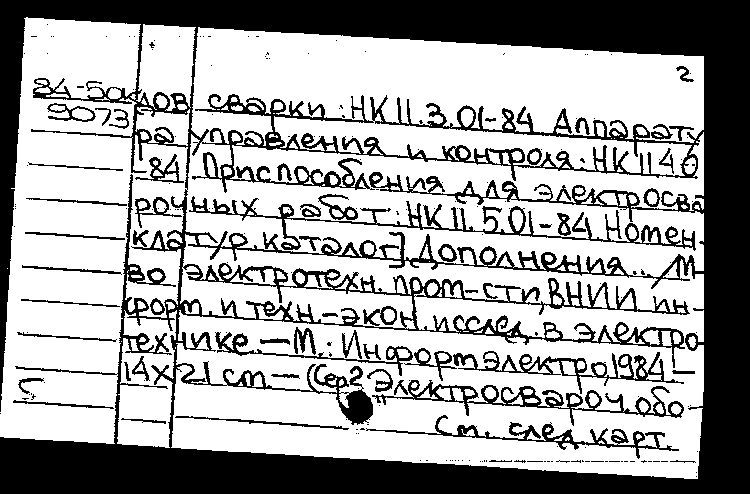 2
84-50к
9073
дов сварки: НК 11.3.01-84 Аппарату
ра управления и контроля: НК 11 4 0
-84 Приспособления для электросва
рочных работ: НК 11. 5.01-84. Номен-
клатур. каталог]. Дополнения.. /М-
во электротехн. пром-сти, ВНИИ ин-
форт. и техн.-экон. исслед. в электро
технике. — М.: Информэлектро, 1984.—
14х21 cm. — (Сер2 "Электросвароч. обо-
См. след. карт.